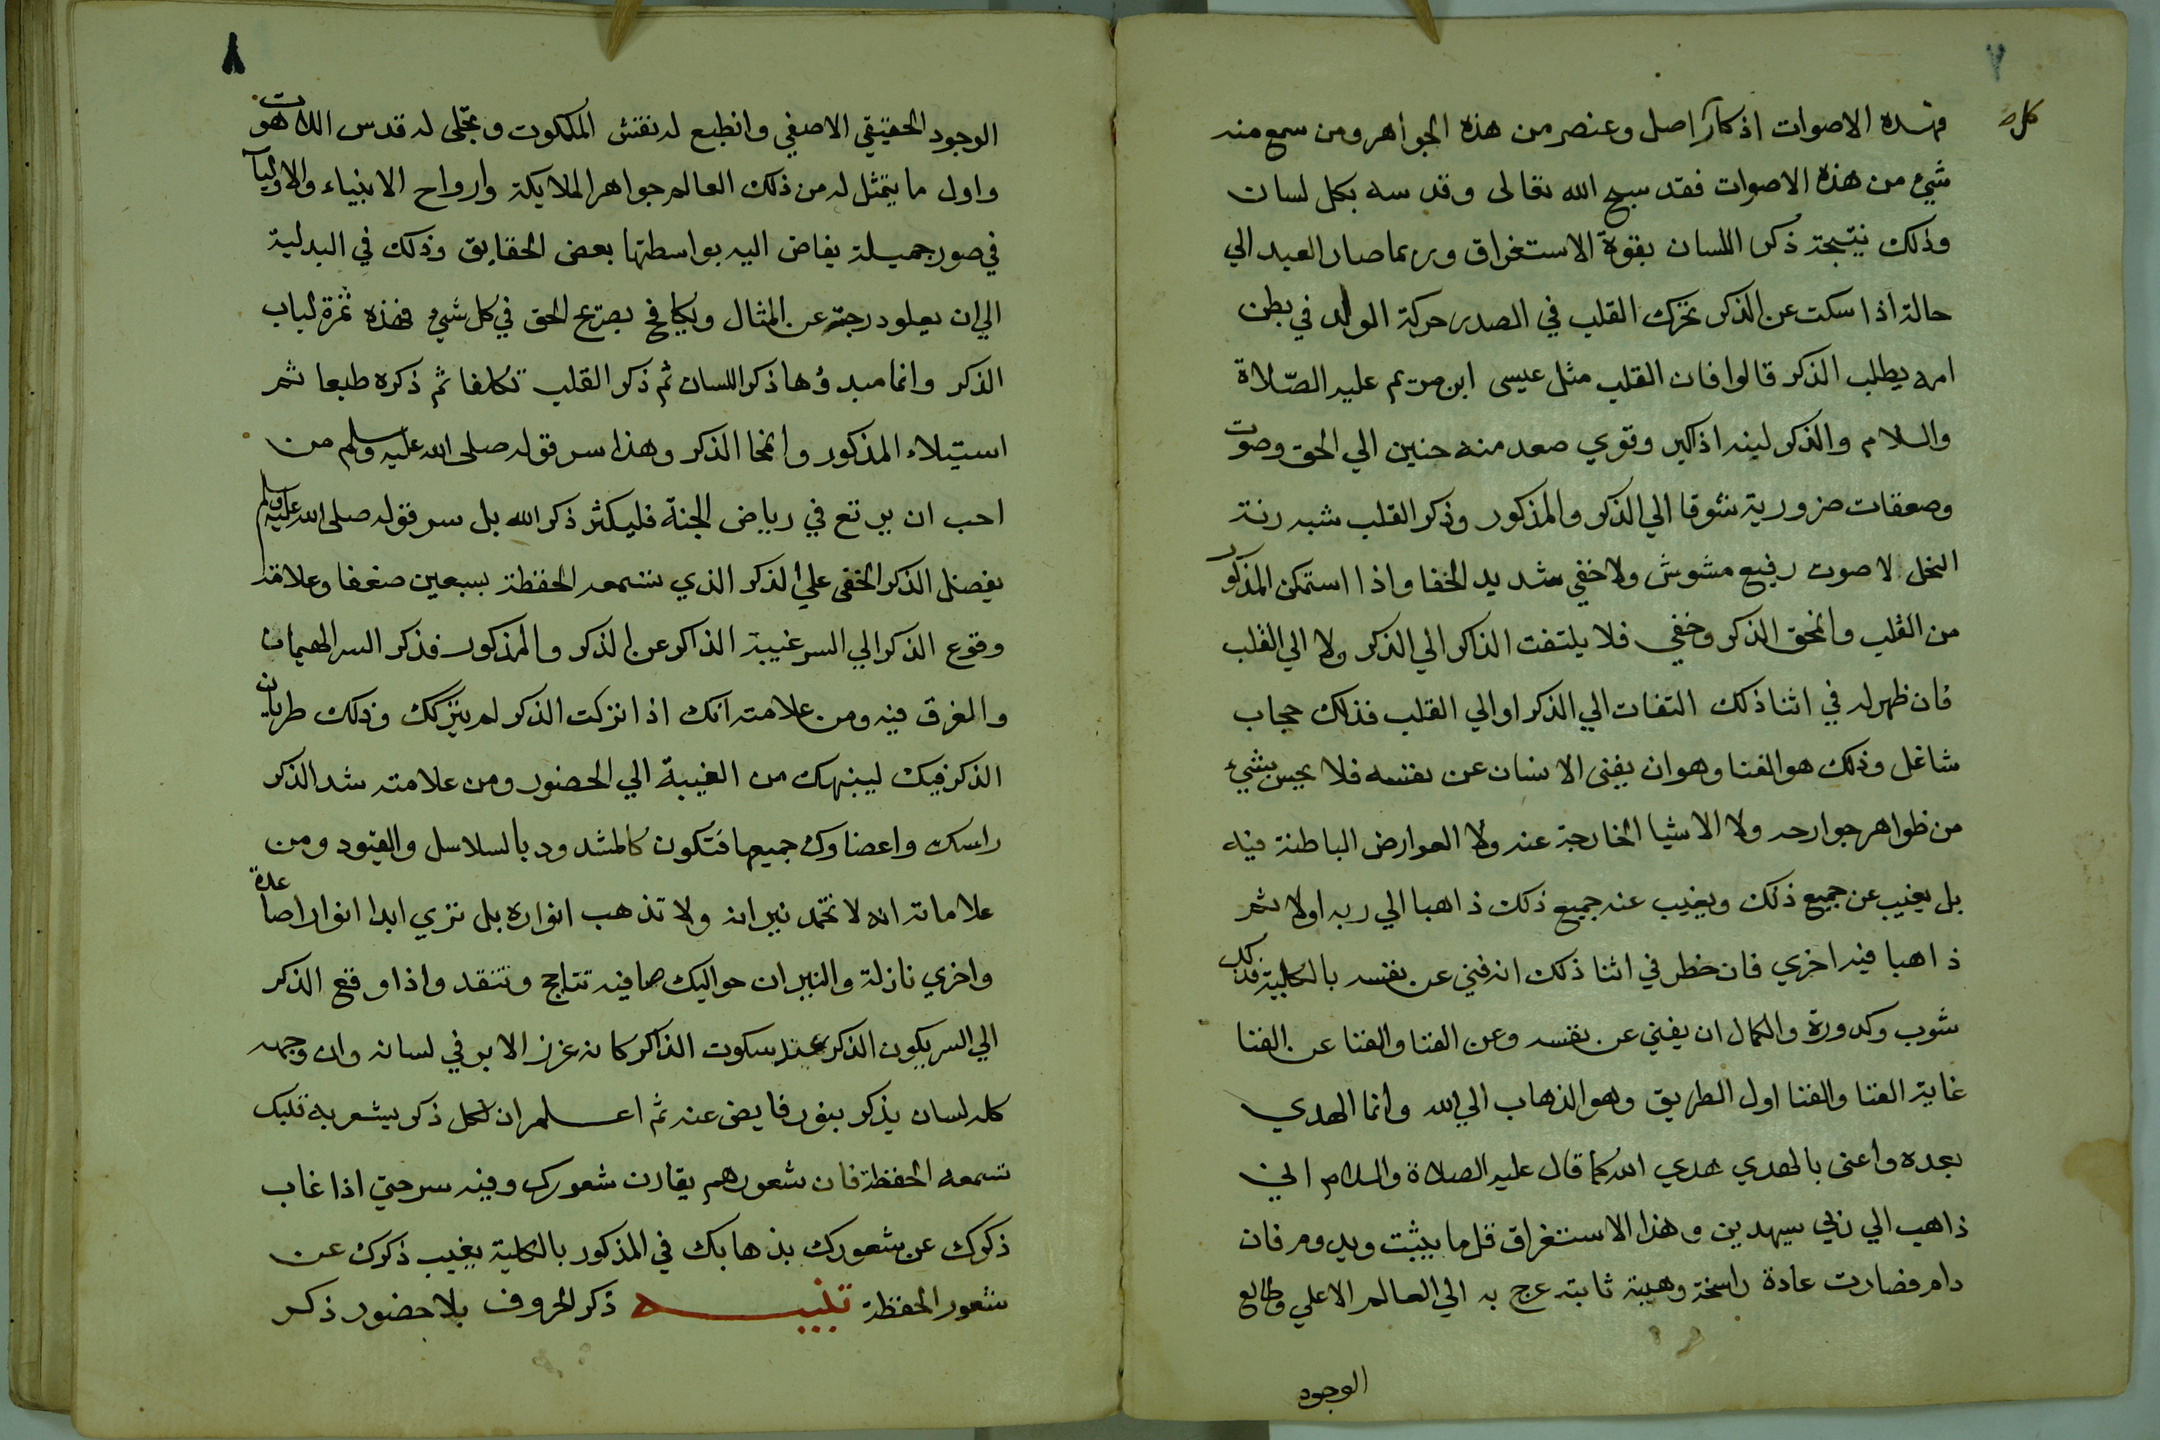 ٧
كل صح
فهذه الاصوات اذكار اصل وعنصر من هذه الجواهر ومن سمع منه
شيء من هذه الاصوات فقد سبح الله تعالى وقدسه بكل لسان
وذلك نتيجة ذكر اللسان بقوة الاستغراق وربما صار العبد الي
حالة اذا سكت عن الذكر تحرك القلب في الصدر حركة الولد في بطن
امه يطلب الذكر قالوا فان القلب مثل عيسى ابن مريم عليه الصّلاة
والسلام والذكر لبنه اذا كبر وقوي صعد منه حنين الي الحق وصوت
وصعقات ضرورية شوقا الي الذكر والمذكور وذكر القلب شبه رنة
النحل لا صوت رفيع مشوش ولا خفي شديد الخفا واذا استمكن المذكور
من القلب وانمحق الذكر وخفي فلا يلتفت الذاكر الي الذكر ولا الي القلب
فان ظهر له في اثنا ذلك التفات الي الذكر او الي القلب فذلك حجاب
شاغل وذلك هو الفنا وهو ان يفنى الانسان عن نفسه فلا يحس بشيء
من ظواهر جوارحه ولا الاشيا الخارجة عنه ولا العوارض الباطنة فيه
بل يغيب عن جميع ذلك ويغيب عنه جميع ذلك ذاهبا الي ربه اولا ثم
ذاهبا فيه اخري فان خطر في اثنا ذلك انه فني عن نفسه بالكلية فذلك
شوب وكدورة والكمال ان يفني عن نفسه وعن الفنا والفنا عن الفنا
غاية الفنا والفنا اول الطريق وهو الذهاب الي الله وانما الهدي
بعده واعنى بالهدي هدي الله كما قال عليه الصلاة والسلام اني
ذاهب الي ربي سيهدين وهذا الاستغراق قل ما يثبت ويدوم فان
دام فصارت عادة راسخة وهيئة ثابتة عرج به الي العالم الاعلي وطالع
الوجود
٨
الوجود الحقيقي الاصفي وانطبع له نقش الملكوت وتجلى له قدس اللاهوت
واول ما يتمثل له من ذلك العالم جواهر الملايكة وارواح الانبياء والاوليآ
في صور جميلة يفاض اليه بواسطتها بعض الحقايق وذلك في البداية
الي ان يعلو درجته عن المثال ويكافح بصريح الحق في كل شيء فهذه ثمرة لباب
الذكر وانما مبدؤها ذكر اللسان ثم ذكر القلب تكلفا ثم ذكره طبعا ثم
استيلاء المذكور وانمحا الذكر وهذا سر قوله صلى الله عليه وسلم من
احب ان يرتع في رياض الجنة فليكثر ذكر الله بل سر قوله صلى الله عليه وسلم
يفضل الذكر الخفى علي الذكر الذي تسمعه الحفظة بسبعين ضعفا وعلامة
وقوع الذكر الي السر غيبة الذاكر عن الذكر والمذكور فذكر السر الهيمان
والغرق فيه ومن علامته انك اذا تركت الذكر لم يتركك وذلك طريان
الذكر فيك لينبهك من الغيبة الي الحضور ومن علامته شد الذكر
راسك واعضاوك جميعها فتكون كالمشدود بالسلاسل والقيود ومن
علاماته انه لا تخمد نيرانه ولا تذهب انواره بل تري ابدا انوارا صاعدة
واخري نازلة والنيران حواليك صافيه تتاجج وتتقد واذا وقع الذكر
الي السر يكون الذكر عند سكوت الذاكر كانه غرز الابر في لسانه وان وجهه
كله لسان يذكر بنور فايض عنه ثم اعلم ان كل ذكر يشعر به قلبك
تسمعه الحفظة فان شعورهم يقارن شعورك وفيه سر حتي اذا غاب
ذكرك عن شعورك بذهابك في المذكور بالكلية يغيب ذكرك عن
شعور الحفظة تنبيه ذكر الحروف بلا حضور ذكر